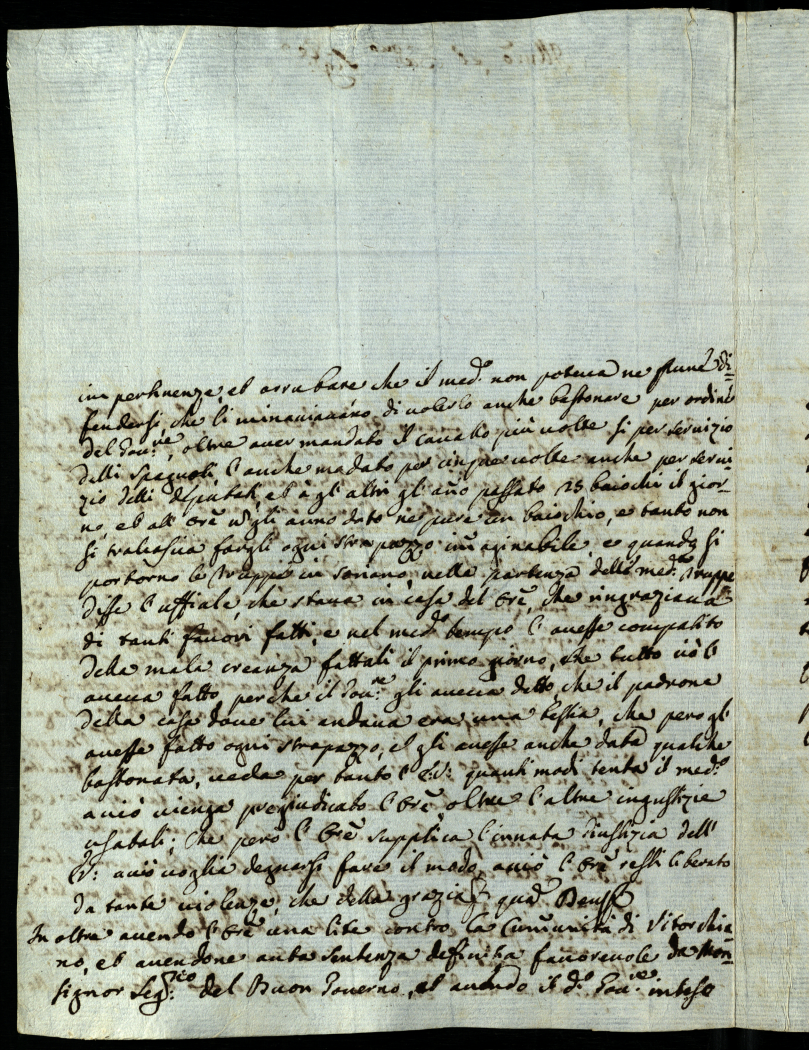 impertinenze, et arrabare che il med.º non poteva ne pure di=
fendersi, che li minaciavano di volerlo anche bastonare per ordine
del Gov.re, oltre aver mandato il cavallo più volte si per servizio
delli Spagnoli, e anche madato per cinque volte anche per servi
zio delli deputati, et à gli altri gl'año passato 25 baiochi il gior-
no, et all' Orē ñ gli anno dato ne pure un baiochio, e tanto non
si tralasiia fargli ogni strapazzo imaginabile, e quando si
portorno le truppe in Soriano, nella partenza delle med.me truppe
disse l'uffiale, che stava in casa del Orē, che ringraziava
di tanti favori fatti, e nel med.º tempo l'avesse compatito
della mala creanza fattali il primo giorno, che tutto ciò l'
aveva fatto perche il Gov.re gli aveva detto, che il padrone
della casa dove lui andava era una bestia, che però gl'
avesse fatto ogni strapazzo, et gli avesse anche data qualche
bastonata, veda per tanto l'E.V. quanti modi tenta il med.º
acciò venga pregiudicato l'Orē, oltre l'altre ingustizie
usatali; che però l'Orē supplica l'innata Giustizia dell'
E.V. acciò voglia degnarsi fare il modo, acciò l'Orē resti liberato
da tante violenze, che della grazia
In oltre avendo l'Orē una lite contro la Comunità di Vitorchia=
no, et avendone auta sentenza definitiva favorevole da Mon=
signor Seg.rio del Buon Governo, et avendo il d.º Gov.re inteso